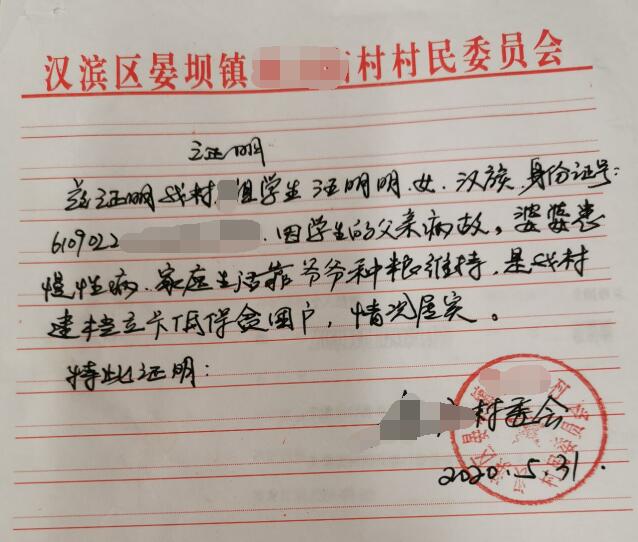 汉滨区晏坝镇 村村民委员会
证明
兹证明我村 组学生汪明明,女、汉族、身份证号:
6109022 .因学生的父亲病故,婆婆患
慢性病、家庭生活靠爷爷种粮维持,是我村
建档立卡低保贫困户,情况属实。
特此证明:
村委会
2020.5.31.